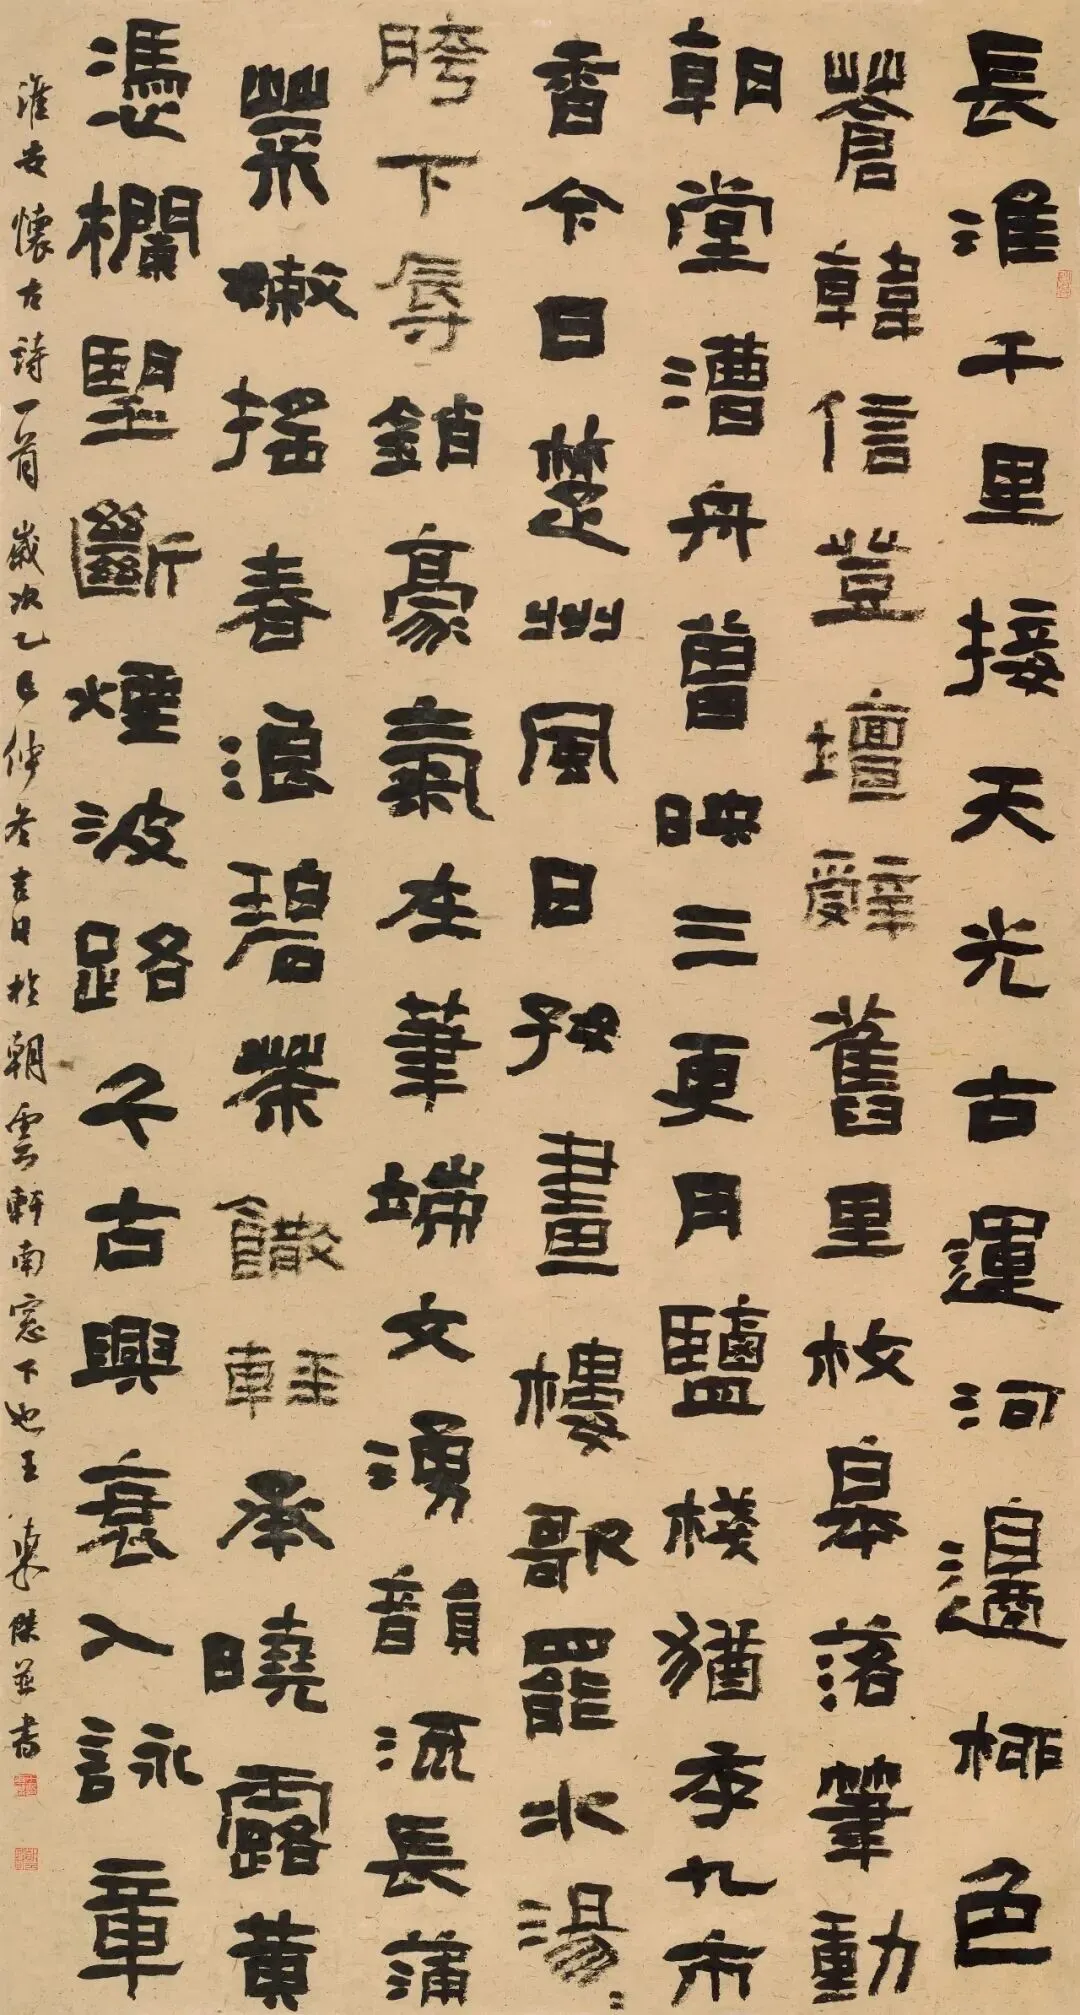 長淮千里接天光古運河邊柳色
蒼韓信登壇辭舊里枚皋落筆動
朝堂漕舟曾映三更月鹽棧猶存九市
香今日楚州風日好畫樓歌罷水湯〻
胯下辱銷豪氣在筆端文湧韻流長蒲
菜嫩搖春浪碧茶饊輕承曉露黄
憑欄望斷煙波路千古興衰入詠章
淮安懷古詩一首歲次乙巳仲冬吉日於朝雲軒南窓下也王東傑并書